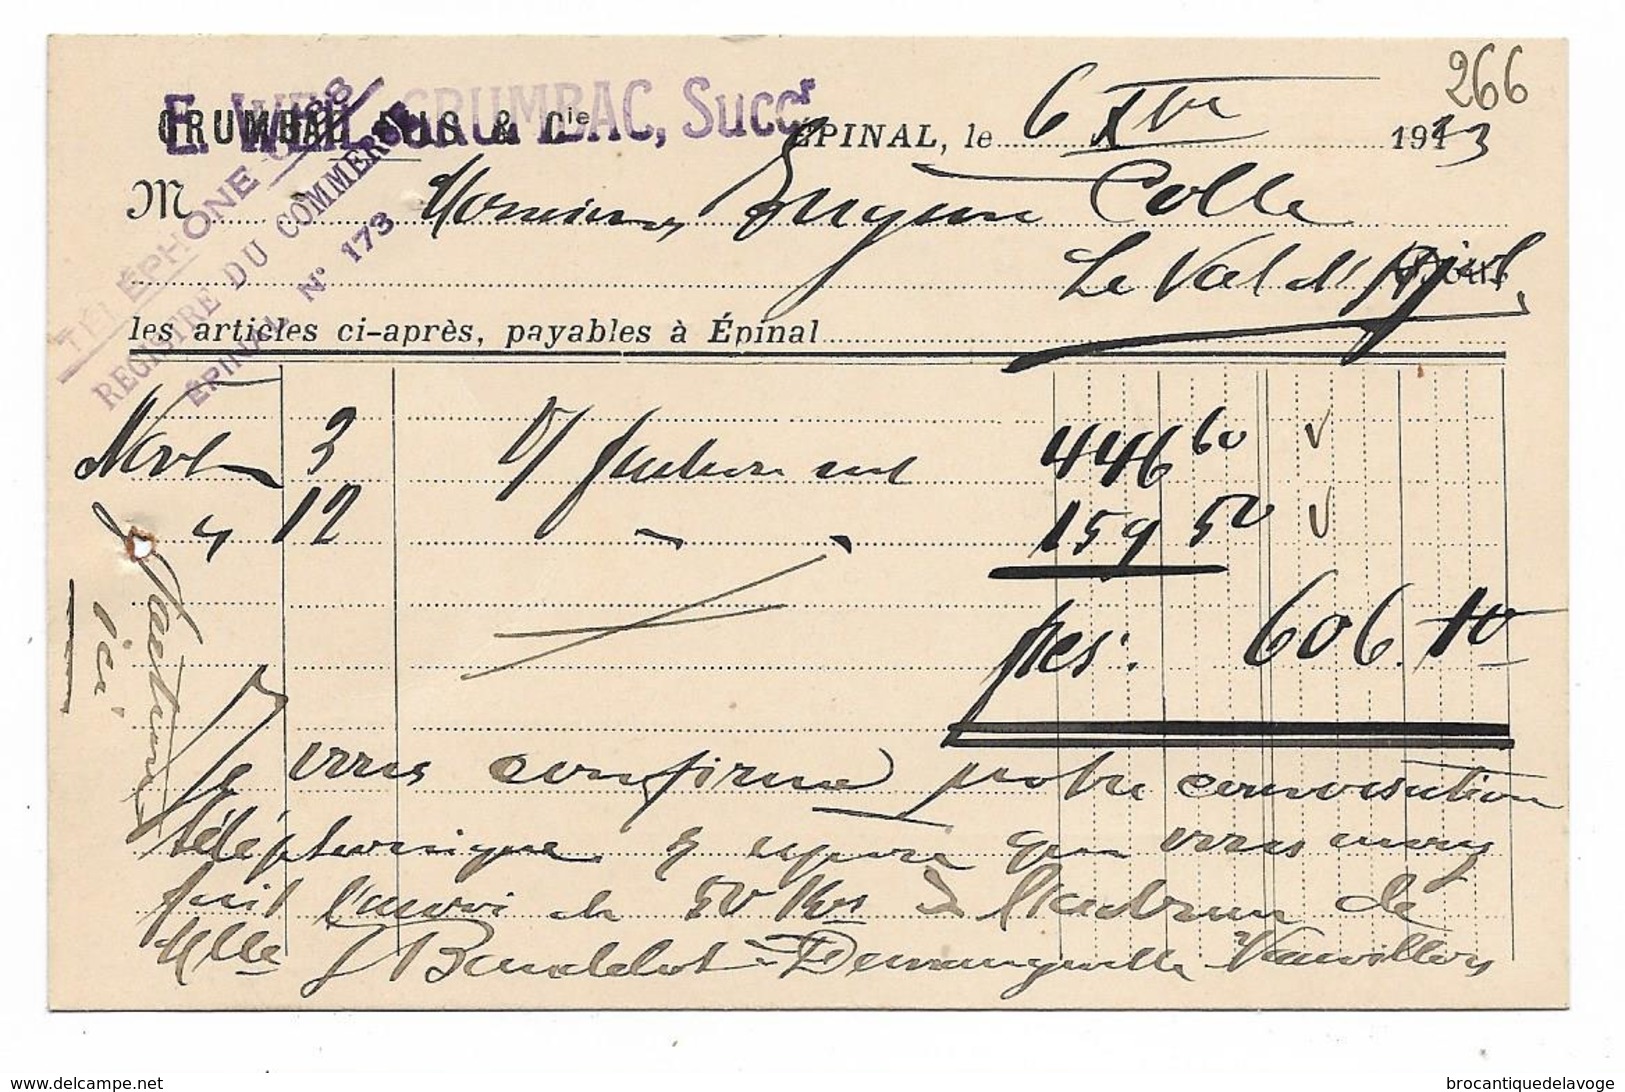 266
E. WEIL-GRUMBAC, Succr
GRUMBAC & Cie
ÉPINAL, le 6 Xbre 1933
TÉLÉPHONE 0.28
REGISTRE DU COMMERCE
ÉPINAL N° 173
M Monsieur Eugène Colle
Le Val d'Ajol
Doit
les articles ci-après, payables à Épinal
Nove 3 V/ facture net 446 60
" 12 " " 159 50
frcs: 606.10
Je vous confirme notre conversation
téléphonique & espère que vous aurez
fait l'envoi de 50 Kos à l'adresse de
Mlle J Baudelot à Demangevelle Vauvillers
ici
brocantiquedelavoge
www.delcampe.net